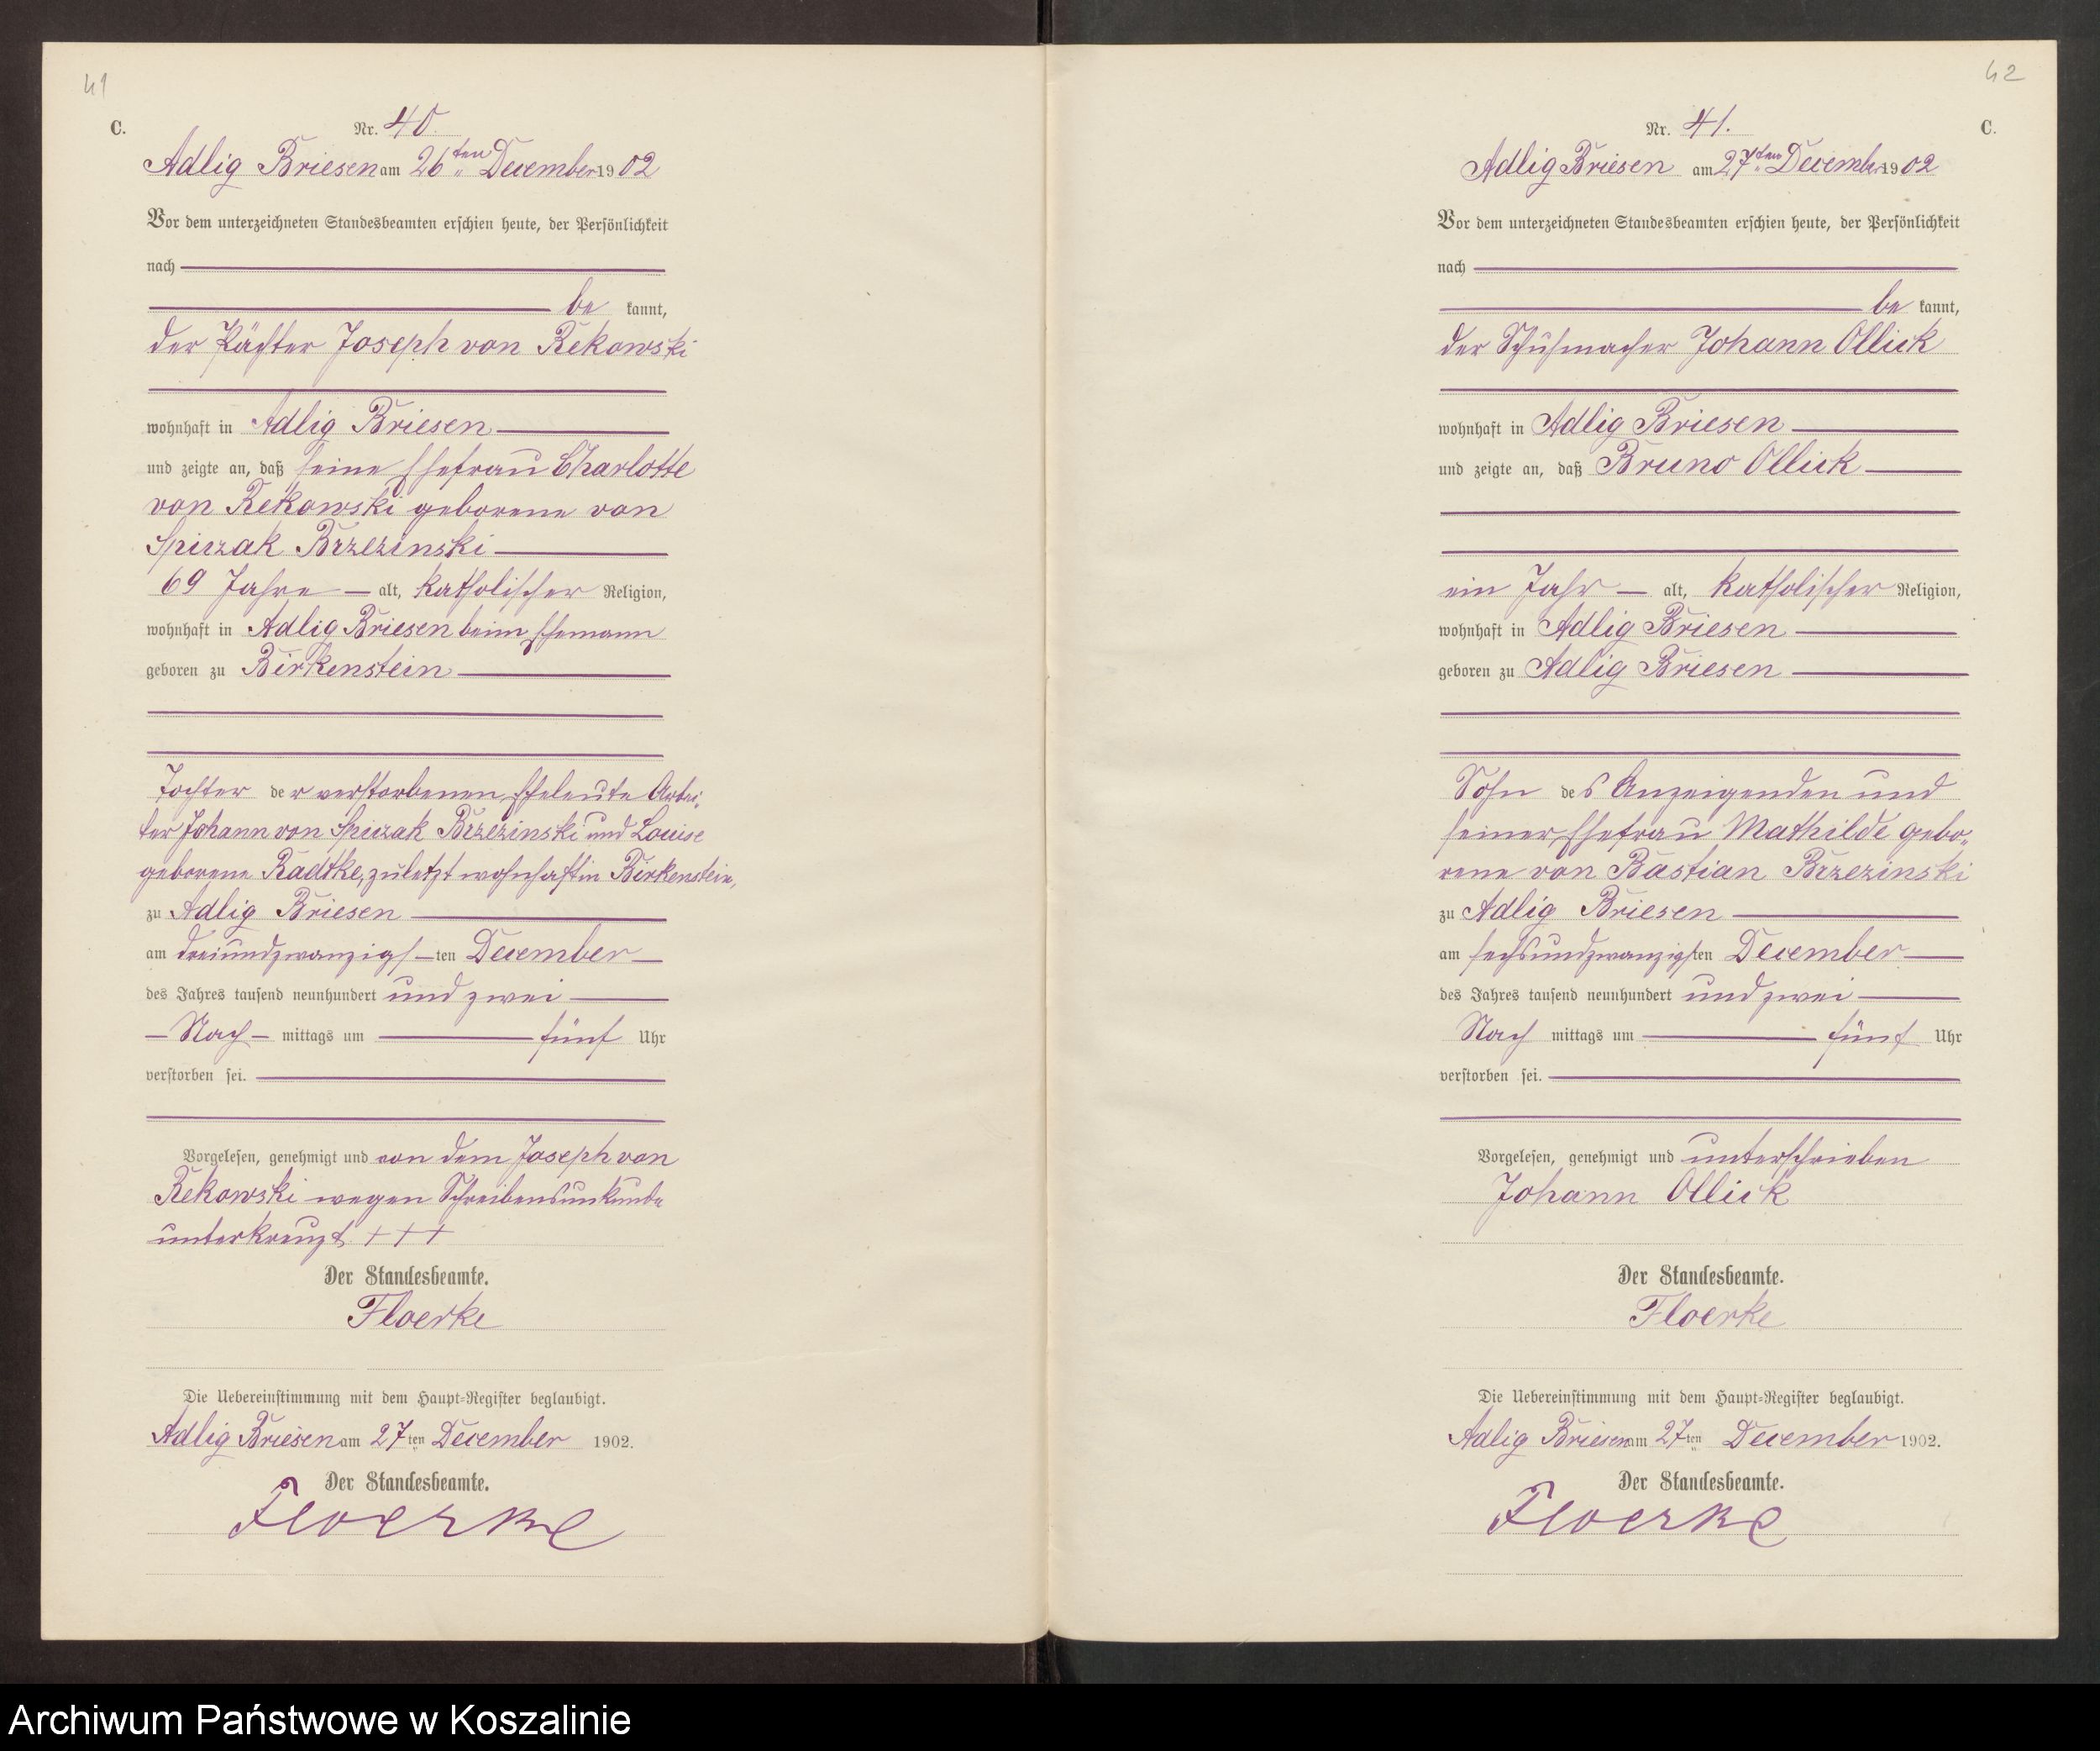 41
C.
Nr. 40.
Adlig Briesen am 26ten December 1902
Vor dem unterzeichneten Standesbeamten erschien heute, der Persönlichkeit
nach
be kannt,
der Pächter Joseph von Rekowski
wohnhaft in Adlig Briesen
und zeigte an, daß seine Ehefrau Charlotte
von Rekowski geborene von
Spiczak Brzezinski
69 Jahre alt, katholischer Religion,
wohnhaft in Adlig Briesen beim Ehemann
geboren zu Birkenstein
Tochter der verstorbenen Eheleute Arbei-
ter Johann von Spiczak Brzezinski und Louise
geborene Radtke, zuletzt wohnhaft in Birkenstein,
zu Adlig Briesen
am dreiundzwanzigs-ten December
des Jahres tausend neunhundert und zwei
Nach mittags um fünf Uhr
verstorben sei.
Vorgelesen, genehmigt und von dem Joseph von
Rekowski wegen Schreibensunkunde
unterkreuzt + + +
Der Standesbeamte.
Floerke
Die Uebereinstimmung mit dem Haupt-Register beglaubigt.
Adlig Briesen am 27ten December 1902.
Der Standesbeamte.
Floerke
42
C.
Nr. 41.
Adlig Briesen am 27ten December 1902
Vor dem unterzeichneten Standesbeamten erschien heute, der Persönlichkeit
nach
be kannt,
der Schuhmacher Johann Ollick
wohnhaft in Adlig Briesen
und zeigte an, daß Bruno Ollick
ein Jahr alt, katholischer Religion,
wohnhaft in Adlig Briesen
geboren zu Adlig Briesen
Sohn des Anzeigenden und
seiner Ehefrau Mathilde gebo-
rene von Bastian Brzezinski
zu Adlig Briesen
am sechsundzwanzigsten December
des Jahres tausend neunhundert und zwei
Nach mittags um fünf Uhr
verstorben sei.
Vorgelesen, genehmigt und unterschrieben
Johann Ollick
Der Standesbeamte.
Floerke
Die Uebereinstimmung mit dem Haupt-Register beglaubigt.
Adlig Briesen am 27ten December 1902.
Der Standesbeamte.
Floerke
Archiwum Państwowe w Koszalinie